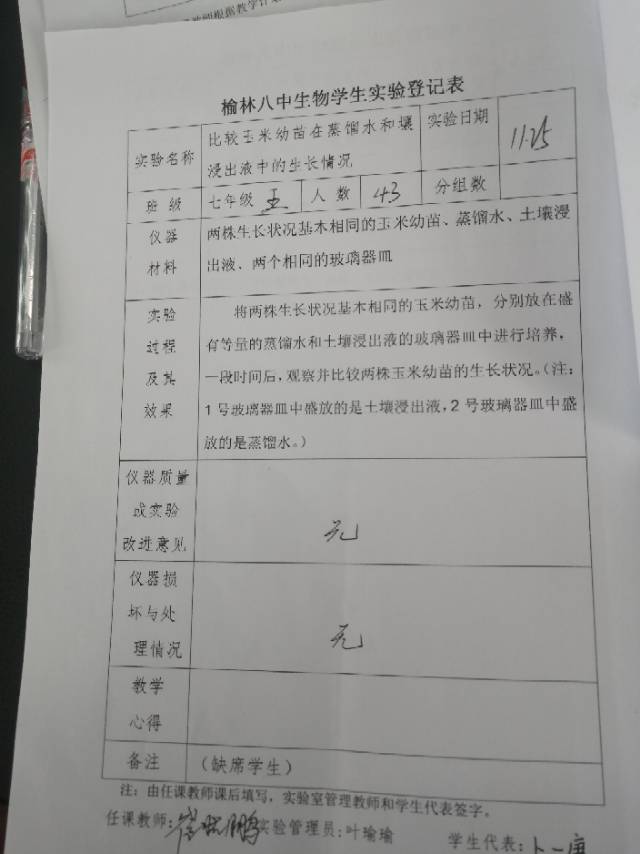 榆林八中生物学生实验登记表
实验名称
比较玉米幼苗在蒸馏水和壤
浸出液中的生长情况
实验日期
11.25
班 级
七年级
人 数
43
分组数
仪器
材料
两株生长状况基本相同的玉米幼苗、蒸馏水、土壤浸
出液、两个相同的玻璃器皿
实验
过程
及其
效果
将两株生长状况基本相同的玉米幼苗，分别放在盛
有等量的蒸馏水和土壤浸出液的玻璃器皿中进行培养，
一段时间后，观察并比较两株玉米幼苗的生长状况。（注：
1 号玻璃器皿中盛放的是土壤浸出液，2 号玻璃器皿中盛
放的是蒸馏水。）
仪器质量
或实验
改进意见
无
仪器损
坏与处
理情况
无
教学
心得
备注
（缺席学生）
注：由任课教师课后填写，实验室管理教师和学生代表签字。
任课教师：
实验管理员：叶瑜瑜
学生代表：